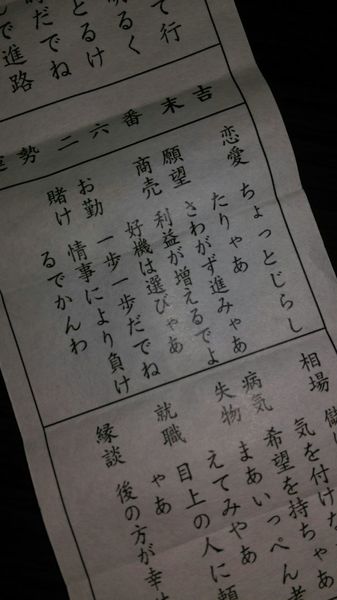 て行
明るく
とるけ
だでね
で進路
勢 二六番 末吉
恋愛 ちょっとじらし
たりゃあ
願望 さわがず進みゃあ
商売 利益が増えるでよ
好機は選びゃあ
お勤 一歩一歩だでね
賭け 情事により負け
るでかんわ
相場
気を付けな
病気 希望を持ちゃあ
失物 まあいっぺん考
えてみやあ
就職 目上の人に頼
やあ
縁談 後の方が幸